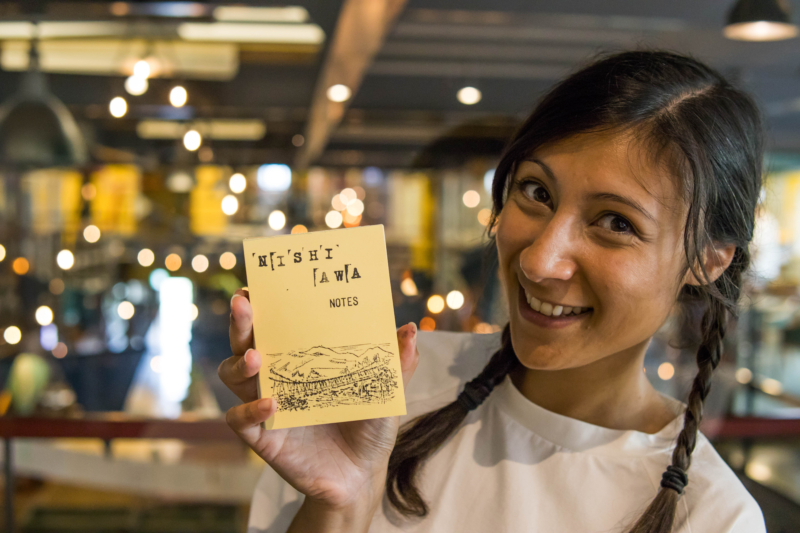 'N'I'S'H'I'
'AWA
NOTES